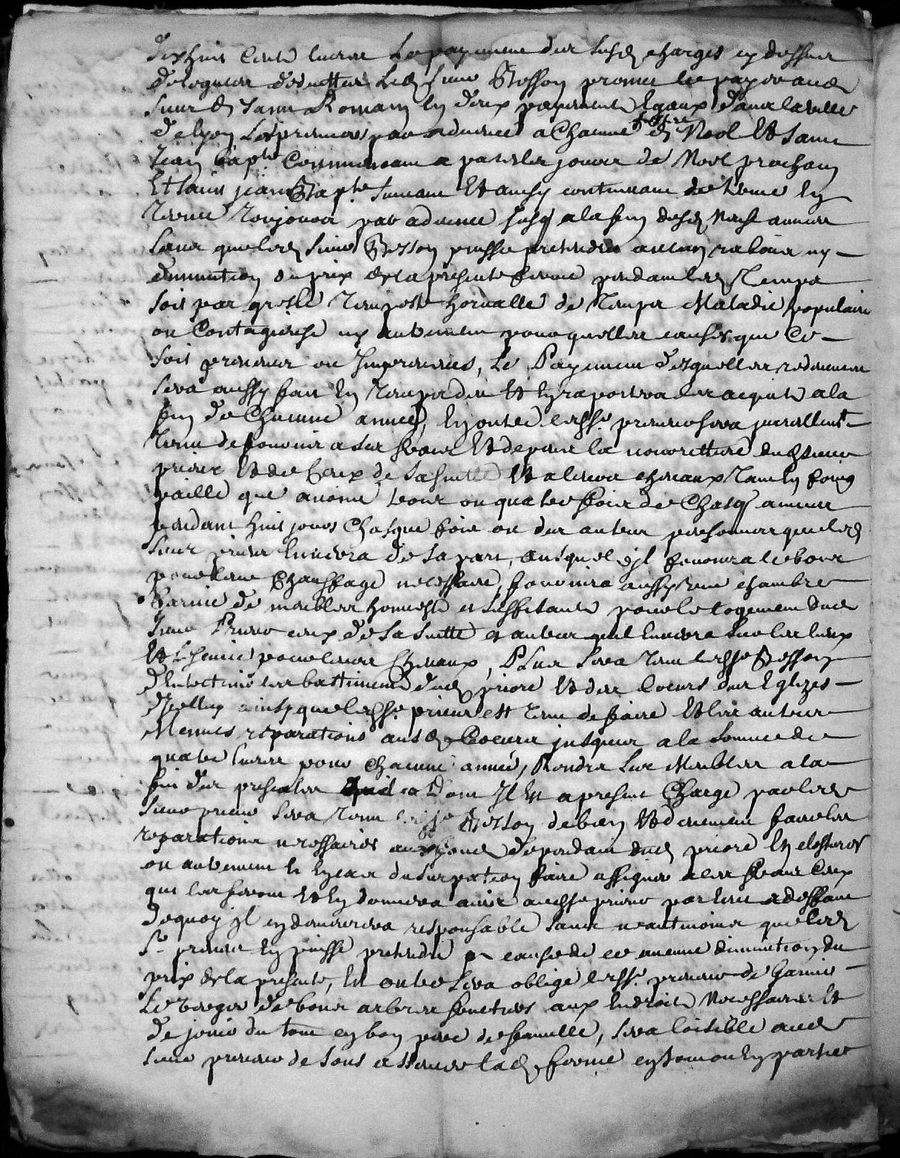 dixhuit Cent livres Le payement des susd charges cy dessus
desquelles led sieur Besson promet de payer aud
sieur de Saint Romain En deux payements Egaux dans la ville
de Lyon par advance a Chacune feste de Noel Et Saint
Jean bapte Commenceant a la feste de Noel prochain
Et Saint Jean Bapte suivant Et ainsy continuant de terme En
terme Toujours par advance jusq a la fin desd Neuf années
sans que led sieur Besson puisse pretendre aucun rabais ny
diminution du prix de la presente ferme pendant led Temps
soit par gresle Tempeste de Temps Maladie populaire
ou Contagieuse ny autrement pour quelque cause que Ce
soit preveue ou Impreveue, Le Payement desquelles redevances
sera aussy fait En Temps deu Et En raportera les acquits a la
fin de Chacune année, En outre led sr preneur sera pareillement
Tenu de fournir a ses frais Et depens la nourriture dud sieur
prieur Et de Ceux de sa suitte Et a leurs chevaux Tant En foing
paille que avoine trois ou quatre fois de Chasq année
pendant huit jours Chasque fois ou des autres personnes que led
sieur prieur Envoyera de sa part, ausquels Il fournira le bois
pour leur Chauffage necessaire, fournira aussy une chambre
Garnie de meubles honneste et suffisants pour le logement dud
sieur Prieur ceux de sa suitte et autres quil Envoyera sur les lieux
Et Ecurie pour leurs Chevaux, Plus sera Tenu led sr Besson
d'Entretenir les battiments dud prioré Et des Coeurs des Eglizes
d'icelluy ainsy que led sr prieur est Tenu de faire Et les autres
Menues reparations ausd Coeurs jusques a la somme de
quatre livres pour Chacune année, Rendre les Meubles a la
fin des presentes dont Il Est a present Chargé par led
sieur prieur sera Tenu led sr Besson de bien Et deuement faire les
reparations necessaires aux fonds dependant dud prioré Et
ou autrement Et En cas dusurpation faire assigner a ses frais Ceux
qui les feront Et En donnera avis aud sr prieur par Ecrit a deffaut
de quoy Il En demeurera responsable sans neantmoins que led
Sr preneur En puisse pretendre a cause de ce aucune diminution du
prix de la presente, En outre sera obligé led sr preneur de Garnir
Le verger de bons arbres fruitiers aux Endroits Necessaires Et
de jouir du tout En bon pere de famille, sera loisible aud
sieur preneur de sous affermer lad ferme En tout ou En partie